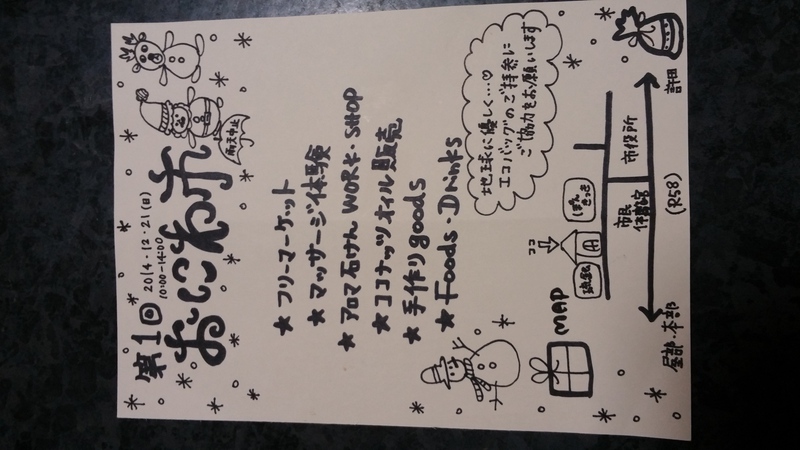 第1回
2014・12・21(日)
10:00-14:00
おにわ市
雨天中止
★フリーマーケット
★マッサージ体験
★アロマ石けんWORK・SHOP
★ココナッツオイル販売
★手作りgoods
★Foods・Drinks
地球に優しく…♡
エコバッグのご持参に
ご協力をお願いします
MAP
ココ
琉銀
ぽんきっき
市民
体育館
市役所
屋部・本部
(R58)
許田